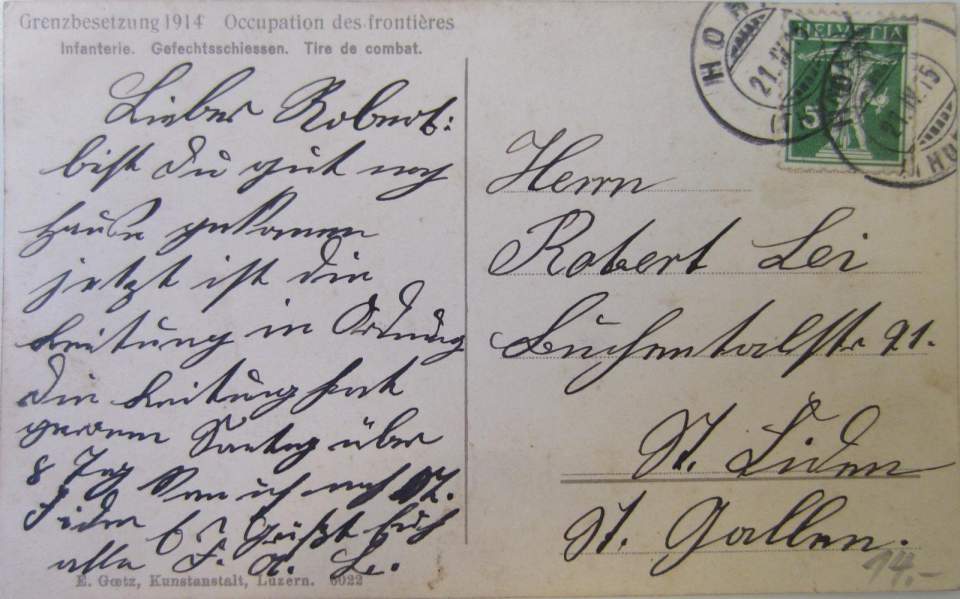 Grenzbesetzung 1914 Occupation des frontières
Infanterie. Gefechtsschiessen. Tire de combat.
Lieber Robert:
bist du gut nach
Hause gekomen
jetzt ist die
Leitung in Ordnung
die Leitung hat
Sontag über
8 Tag kom ich nach St.
Fiden Grüßt Euch
alle F. A. L.
E. Gœtz, Kunstanstalt, Luzern. 6022
HELVETIA
5
21.IV.15
Herrn
Robert Lei
Buchentalstr. 21.
St. Fiden
St. Gallen.
14.-